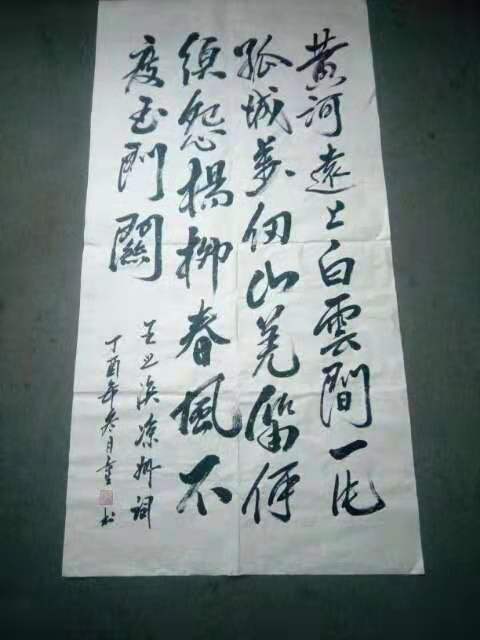 黄河遠上白雲間一片
孤城萬仞山羌笛何
須怨楊柳春風不
度玉門關
王之渙凉州詞
丁酉年冬月 书